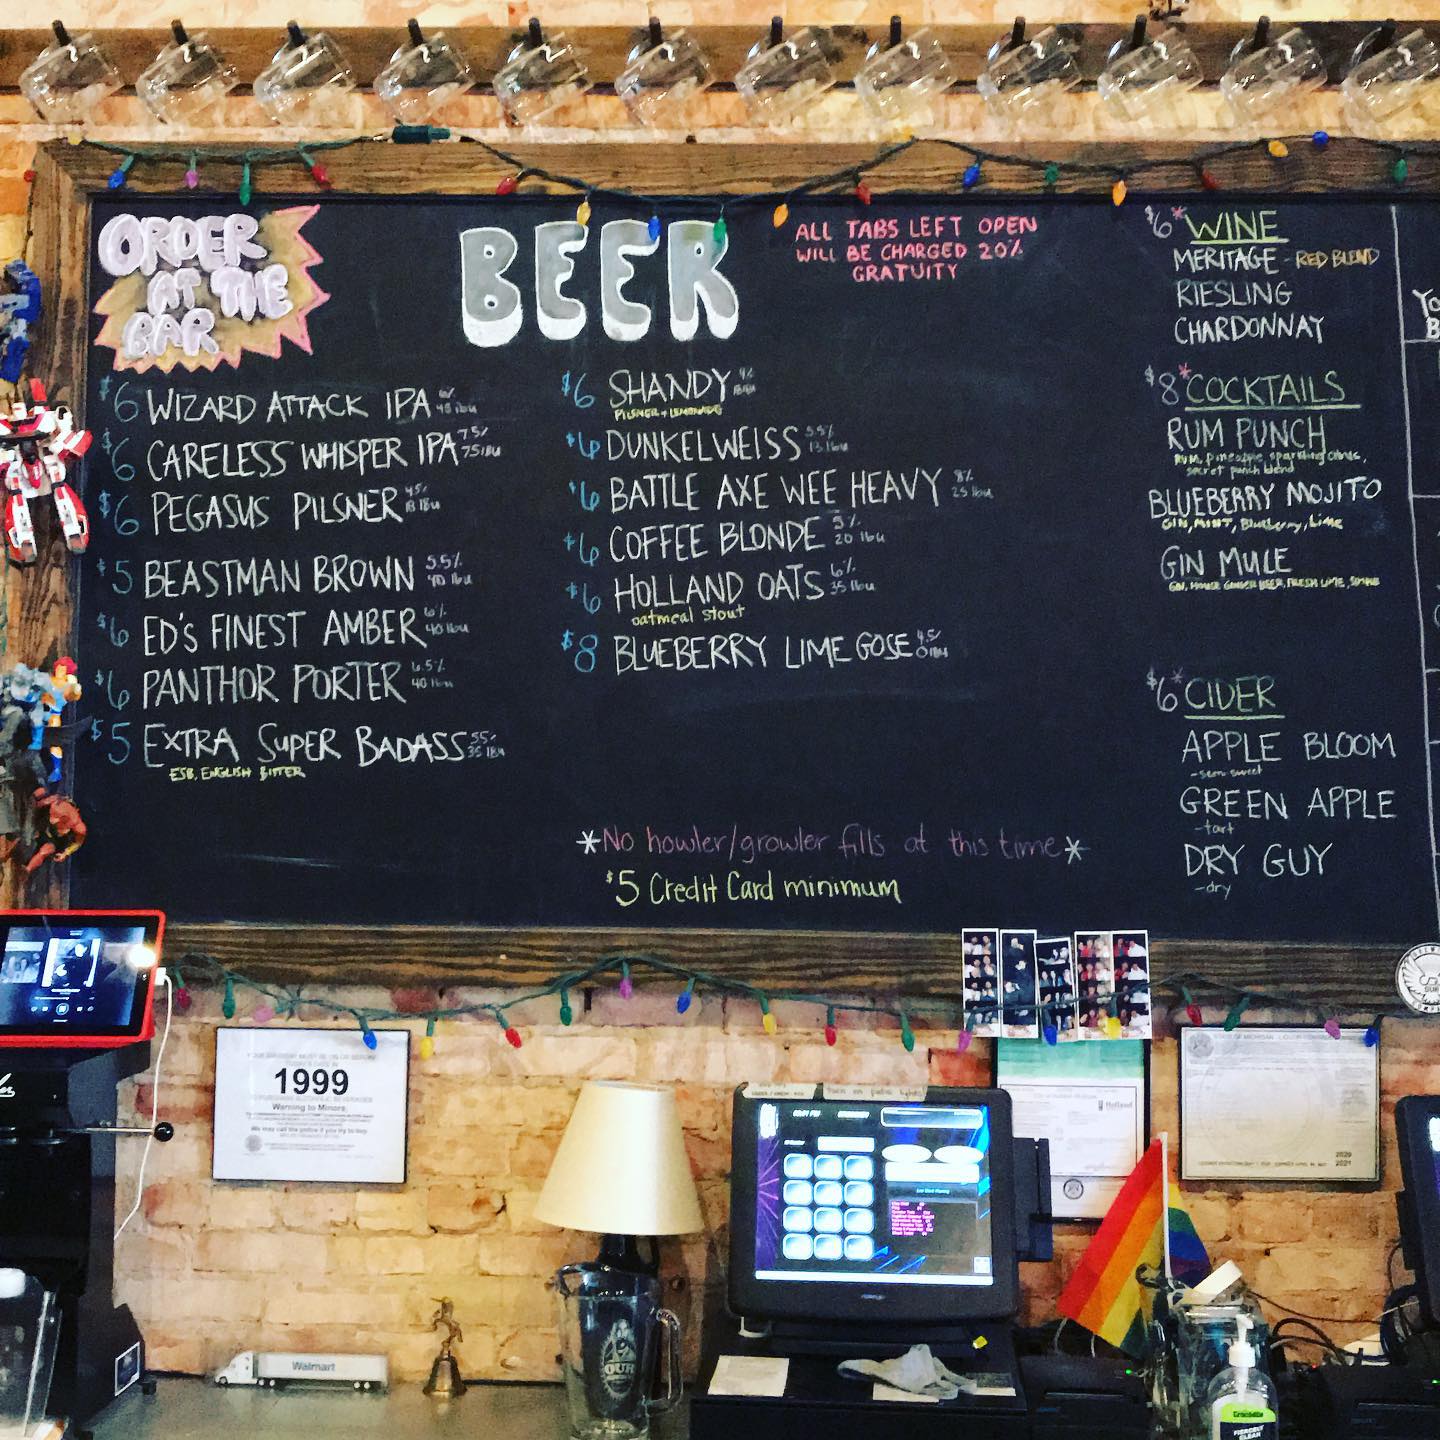 ORDER
AT THE
BAR
BEER
ALL TABS LEFT OPEN
WILL BE CHARGED 20%
GRATUITY
$6 WIZARD ATTACK IPA 6%
45 ibu
$6 CARELESS WHISPER IPA 7.5%
75 IBU
$6 PEGASUS PILSNER 4.5%
13 ibu
$5 BEASTMAN BROWN 5.5%
40 ibu
$6 ED'S FINEST AMBER 6%
40 ibu
$6 PANTHOR PORTER 6.5%
40 ibu
$5 EXTRA SUPER BADASS 5.5%
35 IBU
ESB, ENGLISH BITTER
$6 SHANDY 4%
PILSNER + LEMONADE
$6 DUNKELWEISS 5.5%
13 ibu
$6 BATTLE AXE WEE HEAVY 8%
25 ibu
$6 COFFEE BLONDE 5%
20 ibu
$6 HOLLAND OATS 6%
35 ibu
oatmeal stout
$8 BLUEBERRY LIME GOSE 4.5%
0 IBU
*No howler/growler fills at this time*
$5 Credit Card minimum
$6* WINE
MERITAGE - RED BLEND
RIESLING
CHARDONNAY
$8* COCKTAILS
RUM PUNCH
RUM, pineapple, sparkling citrus,
secret punch blend
BLUEBERRY MOJITO
GIN, MINT, Blueberry, Lime
GIN MULE
GIN, HOUSE GINGER BEER, FRESH LIME, SIMPLE
$6* CIDER
APPLE BLOOM
-semi sweet
GREEN APPLE
-tart
DRY GUY
-dry
1999
Warning to Minors:
We may call the police if you try to buy
Holland
2020
2021
Walmart
OUR
FIERCELY
CLEAN